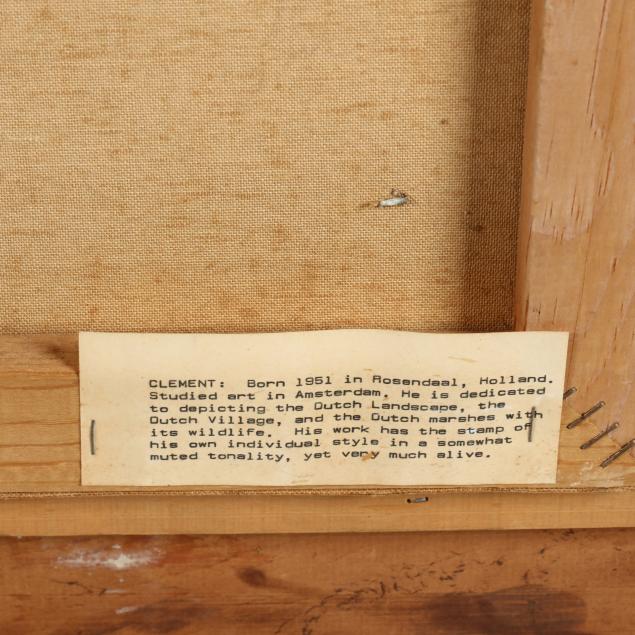 CLEMENT: Born 1951 in Rosendaal, Holland.
Studied art in Amsterdam. He is dedicated
to depicting the Dutch Landscape, the
Dutch Village, and the Dutch marshes with
its wildlife. His work has the stamp of
his own individual style in a somewhat
muted tonality, yet very much alive.